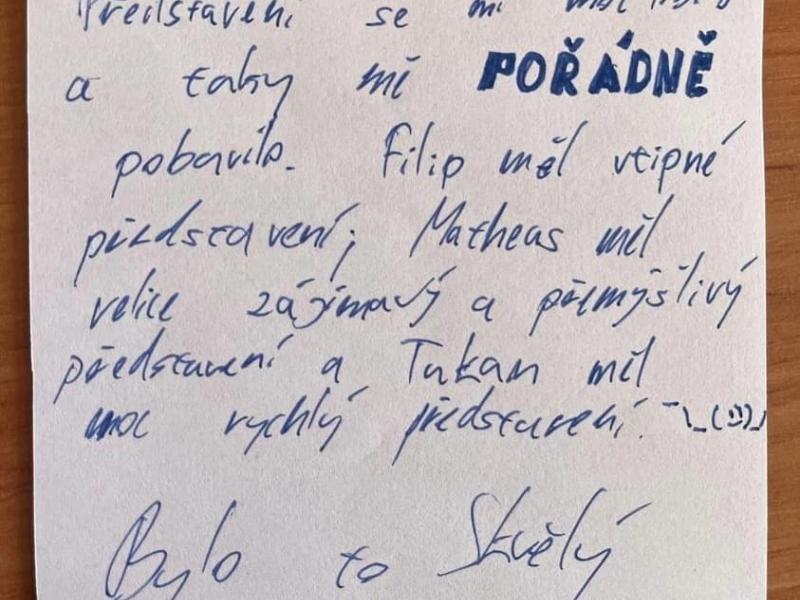 Představení se mi
a taky mě POŘÁDNĚ
pobavilo. Filip měl vtipné
představení; Matheas měl
velice zájimavý a přemýšlivý
představení a Tukan měl
moc rychlý představení. ¯\_(ツ)_/
Bylo to Skvělý